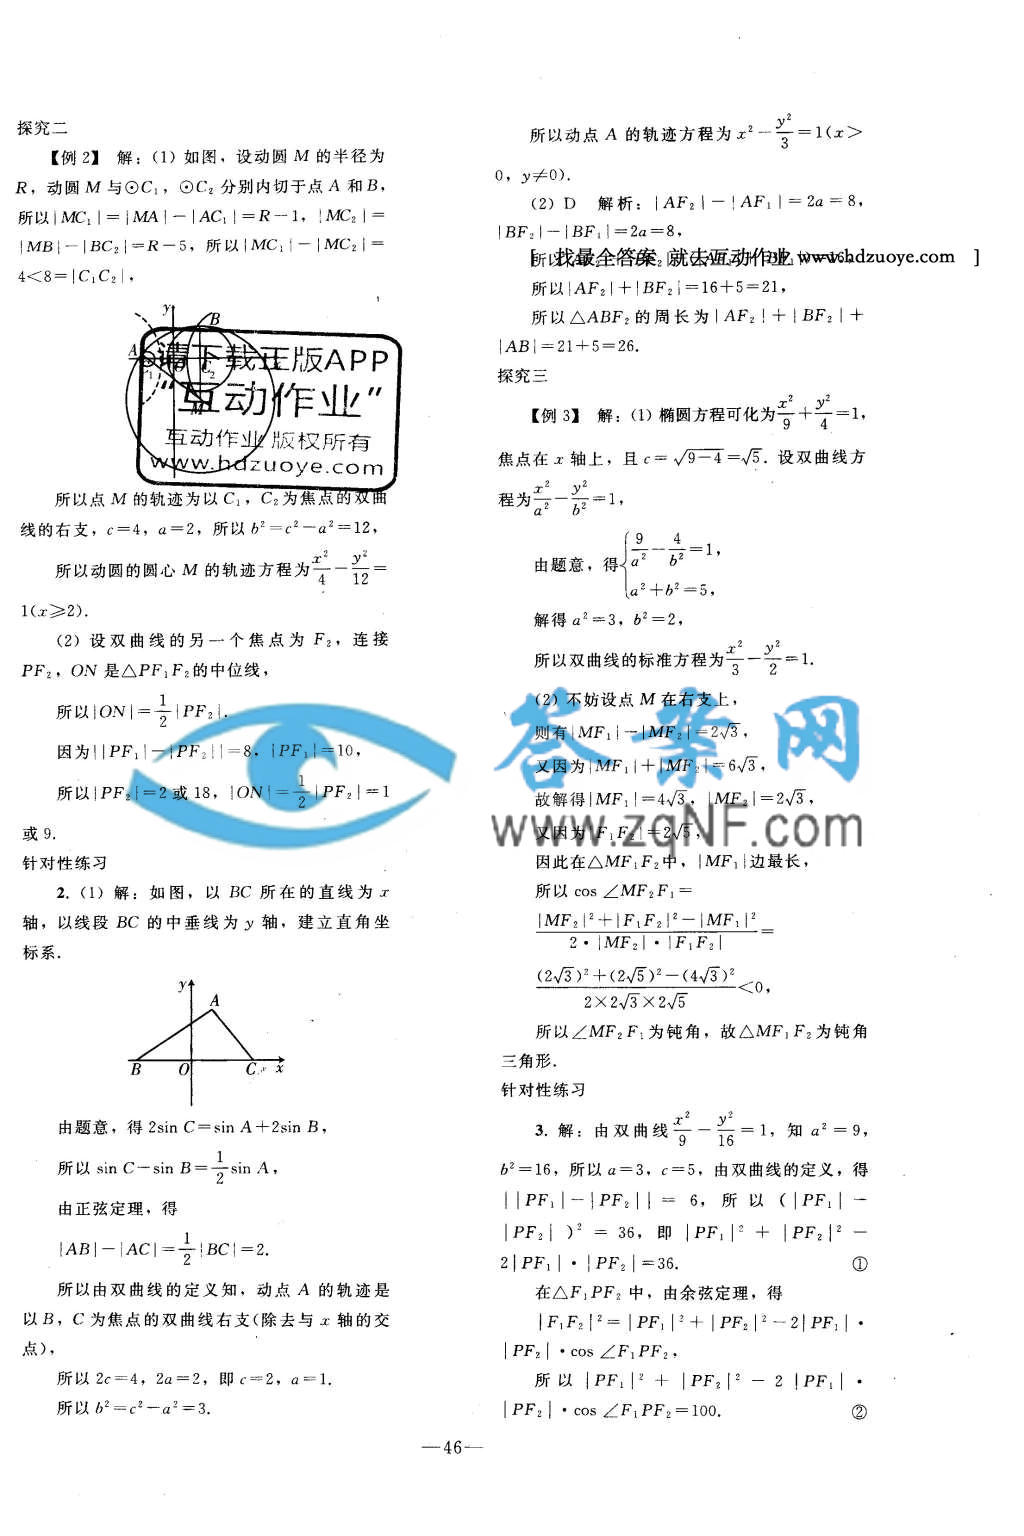 探究二
【例2】 解:(1)如图,设动圆 M 的半径为
R,动圆 M 与⊙C₁,⊙C₂ 分别内切于点 A 和 B,
所以|MC₁|=|MA|-|AC₁|=R-1,|MC₂|=
|MB|-|BC₂|=R-5,所以|MC₁|-|MC₂|=
4<8=|C₁C₂|,
y
B
A
C₁
O
C₂
x
M
请下载正版APP
“互动作业”
互动作业 版权所有
www.hdzuoye.com
所以点 M 的轨迹为以 C₁,C₂为焦点的双曲
线的右支,c=4,a=2,所以 b²=c²-a²=12,
所以动圆的圆心 M 的轨迹方程为x²/4-y²/12=
1(x≥2).
(2)设双曲线的另一个焦点为 F₂,连接
PF₂,ON 是△PF₁F₂的中位线,
所以|ON|=1/2|PF₂|.
因为||PF₁|-|PF₂||=8,|PF₁|=10,
所以|PF₂|=2或18,|ON|=1/2|PF₂|=1
或9.
针对性练习
2.(1)解:如图,以 BC 所在的直线为 x
轴,以线段 BC 的中垂线为 y 轴,建立直角坐
标系.
y
A
B
O
C
x
由题意,得2sin C=sin A+2sin B,
所以 sin C-sin B=1/2sin A,
由正弦定理,得
|AB|-|AC|=1/2|BC|=2.
所以由双曲线的定义知,动点 A 的轨迹是
以 B,C 为焦点的双曲线右支(除去与 x 轴的交
点),
所以 2c=4,2a=2,即 c=2,a=1.
所以 b²=c²-a²=3.
所以动点 A 的轨迹方程为 x²-y²/3=1(x>
0,y≠0).
(2)D 解析:|AF₂|-|AF₁|=2a=8,
|BF₂|-|BF₁|=2a=8,
[ 找最全答案 就去互动作业 www.hdzuoye.com ]
所以|AF₂|+|BF₂|=16+5=21,
所以△ABF₂的周长为|AF₂|+|BF₂|+
|AB|=21+5=26.
探究三
【例3】 解:(1)椭圆方程可化为x²/9+y²/4=1,
焦点在 x 轴上,且 c=√(9-4)=√5.设双曲线方
程为x²/a²-y²/b²=1,
由题意,得{9/a²-4/b²=1,
a²+b²=5,
解得 a²=3,b²=2,
所以双曲线的标准方程为x²/3-y²/2=1.
(2)不妨设点 M 在右支上,
则有|MF₁|-|MF₂|=2√3,
又因为|MF₁|+|MF₂|=6√3,
故解得|MF₁|=4√3,|MF₂|=2√3,
又因为|F₁F₂|=2√5,
因此在△MF₁F₂中,|MF₁|边最长,
所以 cos ∠MF₂F₁=
(|MF₂|²+|F₁F₂|²-|MF₁|²)/(2·|MF₂|·|F₁F₂|)=
((2√3)²+(2√5)²-(4√3)²)/(2×2√3×2√5)<0,
所以∠MF₂F₁为钝角,故△MF₁F₂为钝角
三角形.
针对性练习
3. 解:由双曲线x²/9-y²/16=1,知 a²=9,
b²=16,所以 a=3,c=5,由双曲线的定义,得
||PF₁|-|PF₂||=6,所以(|PF₁|-
|PF₂|)²=36,即|PF₁|²+|PF₂|²-
2|PF₁|·|PF₂|=36. ①
在△F₁PF₂中,由余弦定理,得
|F₁F₂|²=|PF₁|²+|PF₂|²-2|PF₁|·
|PF₂|·cos ∠F₁PF₂,
所以|PF₁|²+|PF₂|²-2|PF₁|·
|PF₂|·cos ∠F₁PF₂=100. ②
答案网
www.zqNF.com
—46—